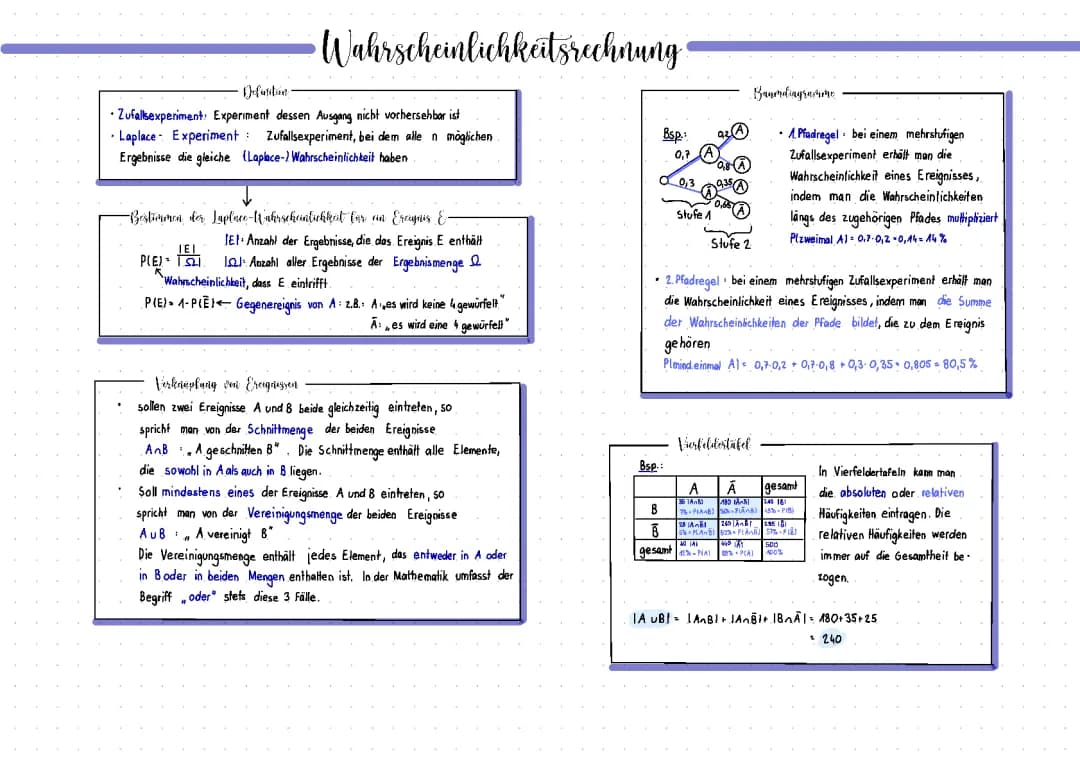 Wahrscheinlichkeitsrechnung
Definition
· Zufallsexperiment: Experiment dessen Ausgang nicht vorhersehbar ist
· Laplace - Experiment : Zufallsexperiment, bei dem alle n möglichen
Ergebnisse die gleiche (Laplace-) Wahrscheinlichkeit haben
Bestimmen der Laplace-Wahrscheinlichkeit für ein Ereignis E
P(E) = |E| / |Ω|
|E|: Anzahl der Ergebnisse, die das Ereignis E enthält
|Ω|: Anzahl aller Ergebnisse der Ergebnismenge Ω
Wahrscheinlichkeit, dass E eintrifft
P(E) = 1 - P(Ē) ← Gegenereignis von A : z.B.: A: „es wird keine 4 gewürfelt"
Ā: „es wird eine 4 gewürfelt"
Verknüpfung von Ereignissen
· sollen zwei Ereignisse A und B beide gleichzeitig eintreten, so
spricht man von der Schnittmenge der beiden Ereignisse
A∩B : „A geschnitten B". Die Schnittmenge enthält alle Elemente,
die sowohl in A als auch in B liegen.
· Soll mindestens eines der Ereignisse A und B eintreten, so
spricht man von der Vereinigungsmenge der beiden Ereignisse
A∪B : „A vereinigt B"
Die Vereinigungsmenge enthält jedes Element, das entweder in A oder
in B oder in beiden Mengen enthalten ist. In der Mathematik umfasst der
Begriff „oder" stets diese 3 Fälle.
Baumdiagramme
Bsp.:
0,2 A
0,7 A
0,8 Ā
0,3 Ā 0,35 A
0,65 Ā
Stufe 1
Stufe 2
· 1. Pfadregel : bei einem mehrstufigen
Zufallsexperiment erhält man die
Wahrscheinlichkeit eines Ereignisses,
indem man die Wahrscheinlichkeiten
längs des zugehörigen Pfades multipliziert
P(zweimal A) = 0,7·0,2 = 0,14 = 14 %
· 2. Pfadregel : bei einem mehrstufigen Zufallsexperiment erhält man
die Wahrscheinlichkeit eines Ereignisses, indem man die Summe
der Wahrscheinlichkeiten der Pfade bildet, die zu dem Ereignis
gehören
P(mind. einmal A) = 0,7·0,2 + 0,7·0,8 + 0,3·0,35 = 0,805 = 80,5 %
Vierfeldertafel
Bsp.:
A Ā gesamt
B
B̄
gesamt
500
100%
In Vierfeldertafeln kann man
die absoluten oder relativen
Häufigkeiten eintragen. Die
relativen Häufigkeiten werden
immer auf die Gesamtheit be-
zogen.
|A∪B| = |A∩B| + |A∩B̄| + |B∩Ā| = 180+35+25
= 240